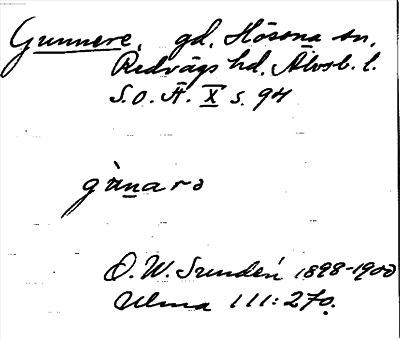 Gunnere, gd, Hössna sn,
Redvägs hd, Älvsb. l.
S.O.Ä. X s. 94
gùnarə
O. W. Sundén 1898-1900
Ulma 111:270.